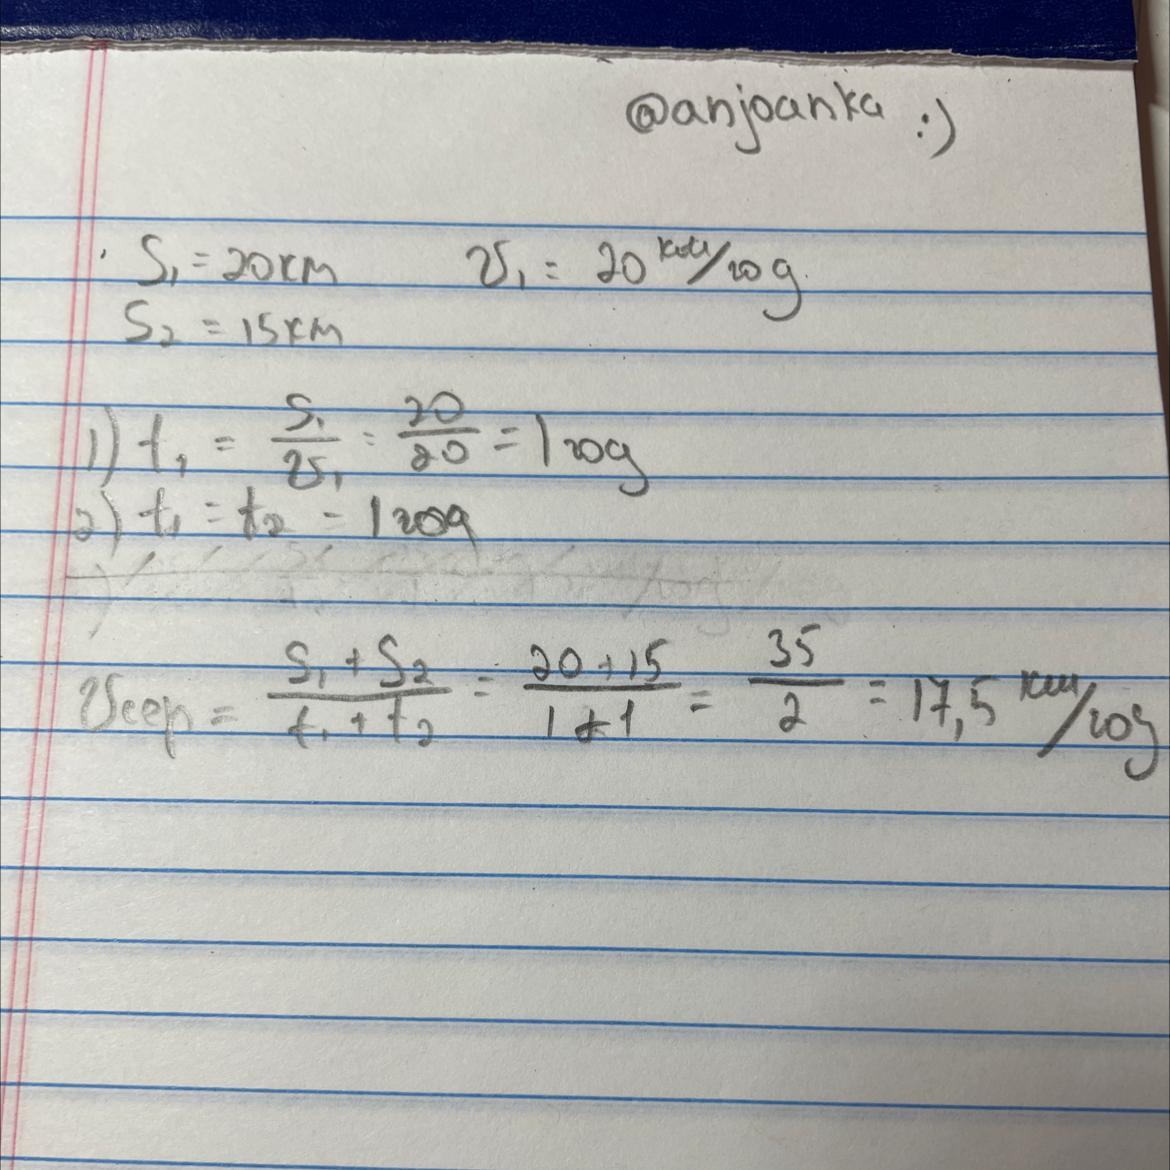 @anjoanka :)
S₁ = 20км v₁ = 20 км/год
S₂ = 15км
1) t₁ = S₁/v₁ = 20/20 = 1 год
2) t₁ = t₂ = 1 год
vсер = (S₁ + S₂)/(t₁ + t₂) = (20+15)/(1+1) = 35/2 = 17,5 км/год